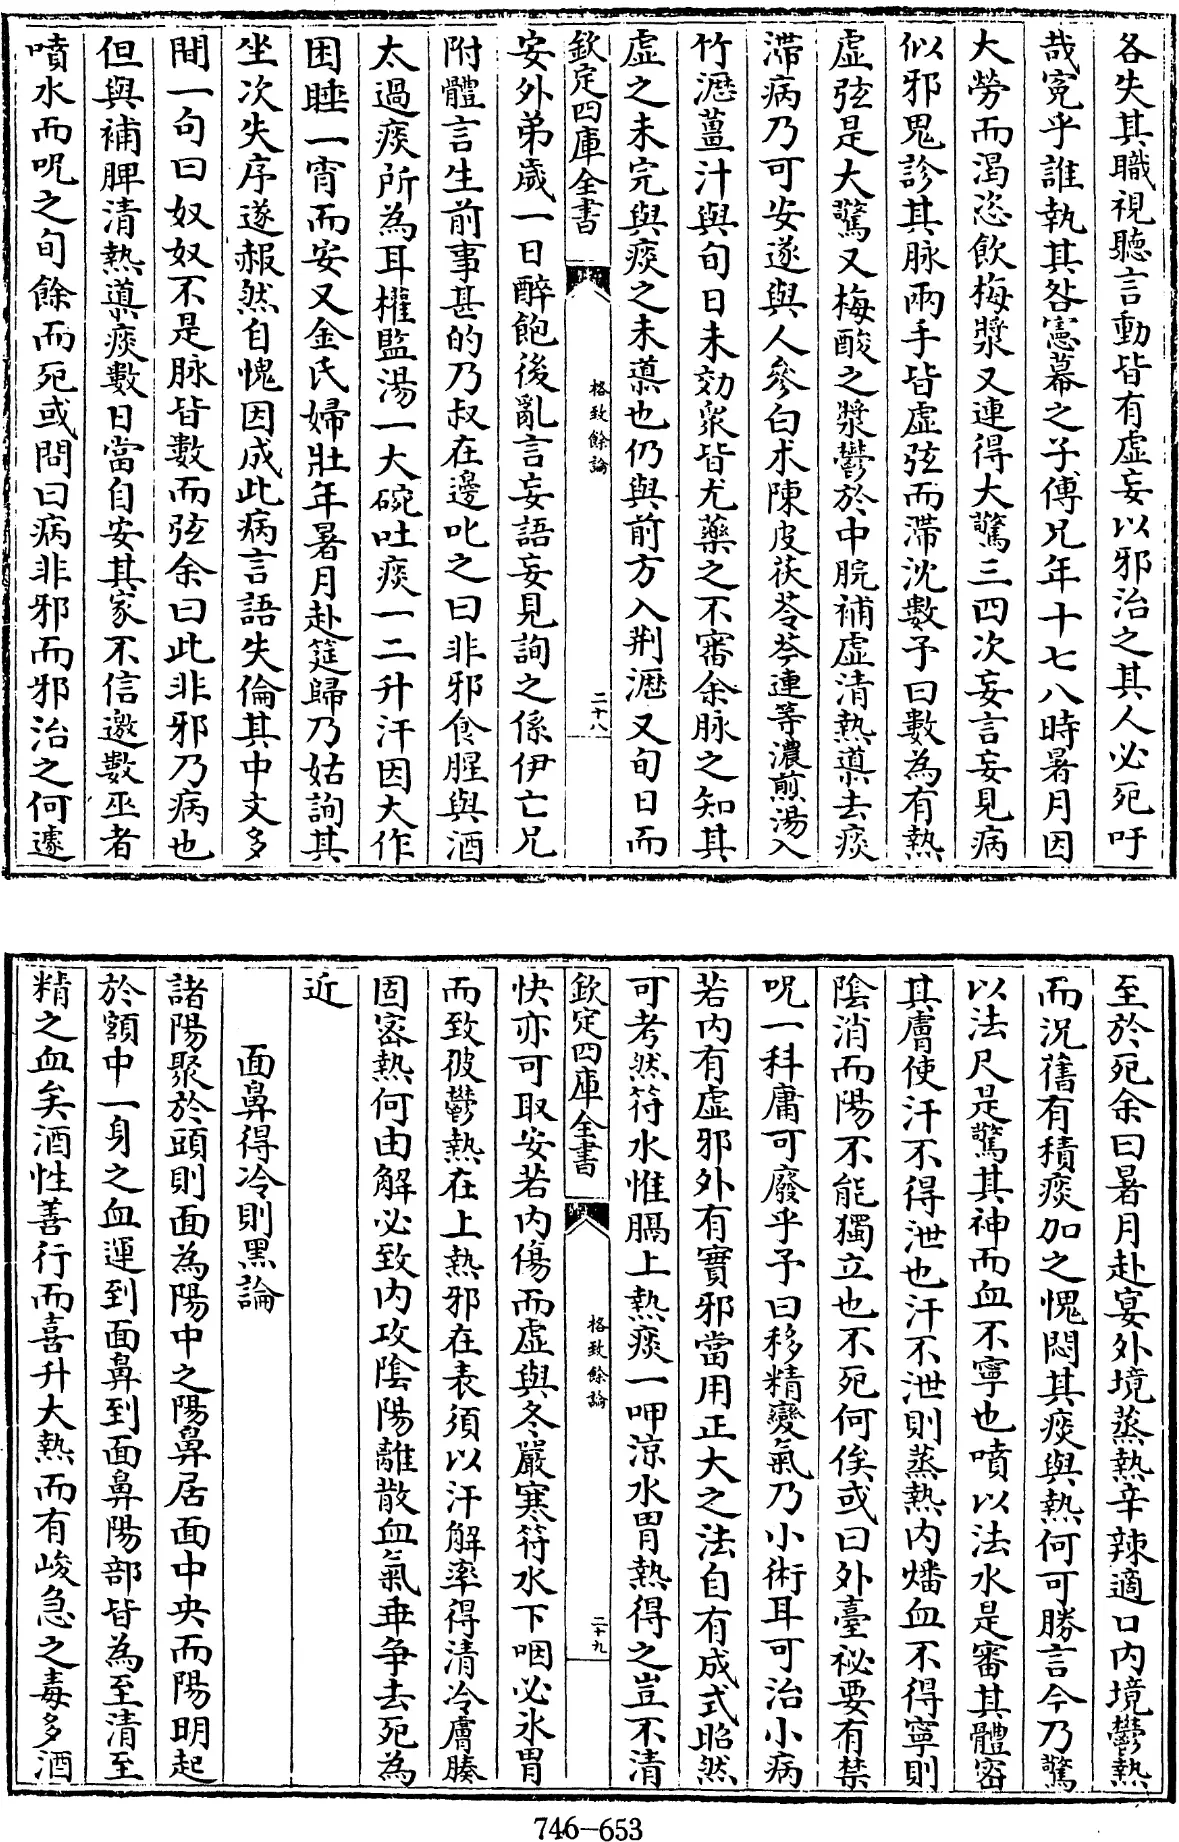 各失其職視聽言動皆有虛妄以邪治之其人必死吁
哉寃乎誰執其咎憲幕之子傅兄年十七八時暑月因
大勞而渴恣飲梅漿又連得大驚三四次妄言妄見病
似邪鬼診其脉兩手皆虛弦而滯沈數予曰數為有熱
虛弦是大驚又梅酸之漿鬱於中脘補虛清熱導去痰
滯病乃可安遂與人參白朮陳皮茯苓芩連等濃煎湯入
竹瀝薑汁與旬日未効衆皆尤藥之不審余脉之知其
虛之未完與痰之未導也仍與前方入荆瀝又旬日而
欽定四庫全書
格致餘論
二十八
安外弟歲一日醉飽後亂言妄語妄見詢之係伊亡兄
附體言生前事甚的乃叔在邊叱之曰非邪食腥與酒
太過痰所為耳權監湯一大碗吐痰一二升汗因大作
困睡一宵而安又金氏婦壯年暑月赴筵歸乃姑詢其
坐次失序遂赧然自愧因成此病言語失倫其中文多
間一句曰奴奴不是脉皆數而弦余曰此非邪乃病也
但與補脾清熱導痰數日當自安其家不信邀數巫者
噴水而呪之旬餘而死或問曰病非邪而邪治之何遽
至於死余曰暑月赴宴外境蒸熱辛辣適口内境鬱熱
而況舊有積痰加之愧悶其痰與熱何可勝言今乃驚
以法尺是驚其神而血不寧也噴以法水是審其體密
其膚使汗不得泄也汗不泄則蒸熱内燔血不得寧則
陰消而陽不能獨立也不死何俟或曰外臺秘要有禁
呪一科庸可廢乎予曰移精變氣乃小術耳可治小病
若内有虛邪外有實邪當用正大之法自有成式昭然
可考然符水惟膈上熱痰一呷凉水胃熱得之豈不清
欽定四庫全書
格致餘論
二十九
快亦可取安若内傷而虛與冬嚴寒符水下咽必氷胃
而致彼鬱熱在上熱邪在表須以汗解率得清冷膚腠
固密熱何由解必致内攻陰陽離散血氣乖争去死為
近
面鼻得冷則黑論
諸陽聚於頭則面為陽中之陽鼻居面中央而陽明起
於額中一身之血運到面鼻到面鼻陽部皆為至清至
精之血矣酒性善行而喜升大熱而有峻急之毒多酒
746-653